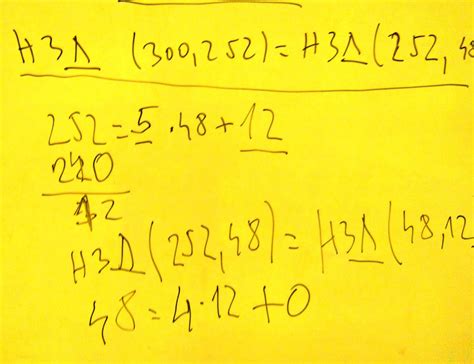 НЗД (300,252)=НЗД(252,48
252=5·48+12
240
12
НЗД(252,48)=НЗД(48,12
48=4·12+0